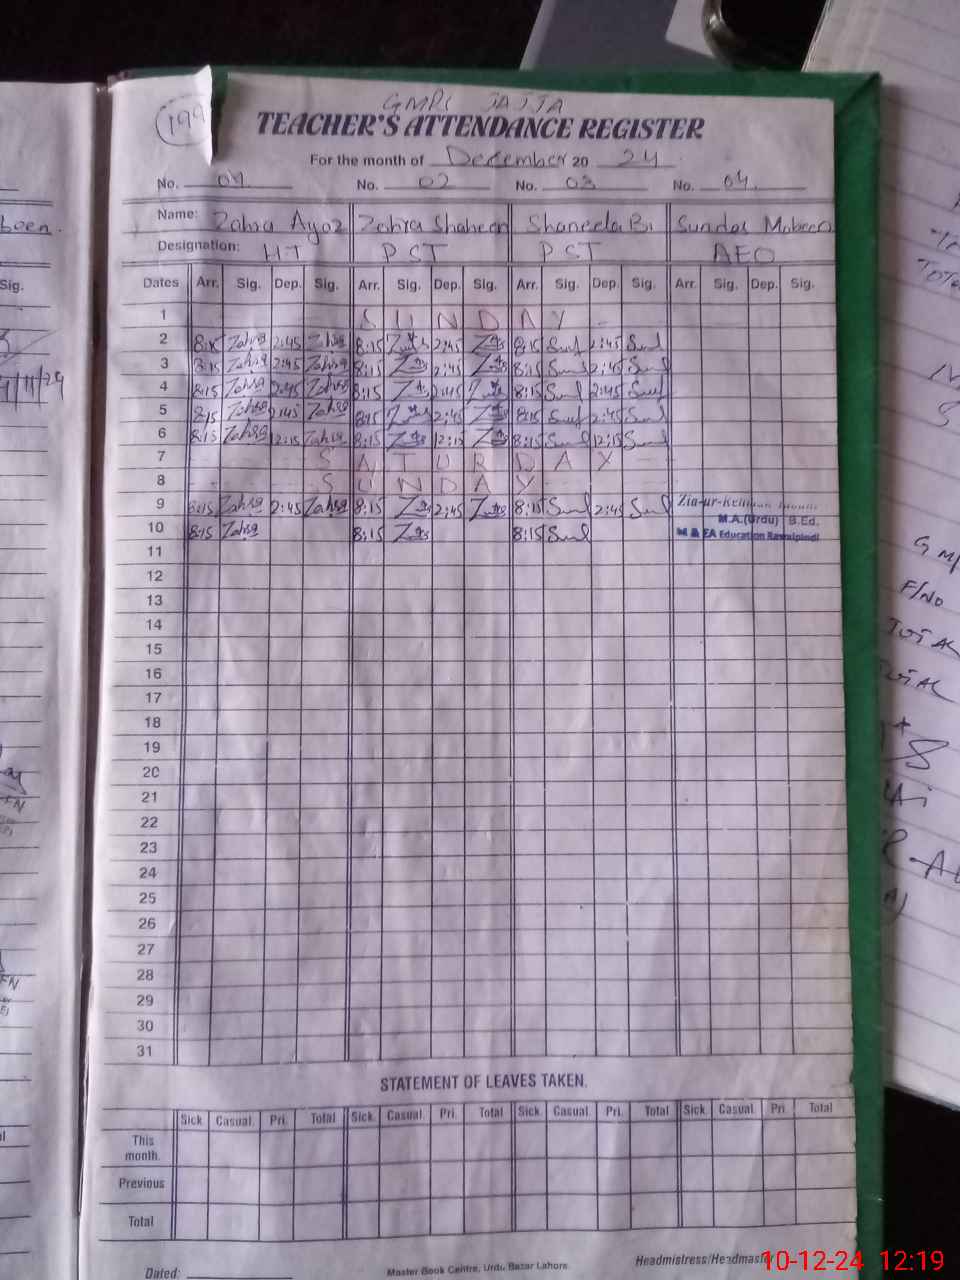 199
GMPS JAJJA
TEACHER'S ATTENDANCE REGISTER
For the month of December 20 24
No. 01. No. 02 No. 03 No. 04.
Name: Zahra Ayaz Zahra Shaheen Shaneela Bi Sundas Mobeen
Designation: HT PST PST AEO
Dates Arr. Sig. Dep. Sig. Arr. Sig. Dep. Sig. Arr. Sig. Dep. Sig. Arr. Sig. Dep. Sig.
1 SUNDAY
2 8:15 Zahra 2:45 Zahra 8:15 2:45 8:15 2:45
3 8:15 Zahra 2:45 Zahra 8:15 2:45 8:15 2:45
4 8:15 Zahra 2:45 Zahra 8:15 2:45 8:15 2:45
5 8:15 Zahra 2:45 Zahra 8:15 2:45 8:15 2:45
6 8:15 Zahra 12:15 Zahra 8:15 12:15 8:15 12:15
7 SATURDAY
8 SUNDAY
9 8:15 Zahra 2:45 Zahra 8:15 2:45 8:15 2:45 Zia-ur-Rehman
M.A.(Urdu) B.Ed.
10 8:15 Zahra 8:15 8:15 M & EA Education Rawalpindi
11
12
13
14
15
16
17
18
19
20
21
22
23
24
25
26
27
28
29
30
31
STATEMENT OF LEAVES TAKEN.
Sick. Casual. Pri. Total Sick. Casual. Pri. Total Sick. Casual. Pri. Total Sick. Casual Pri Total
This month.
Previous
Total
Dated: Master Book Centre, Urdu Bazar Lahore. Headmistress/Headmaster
10-12-24 12:19
boen.
Sig.
F/No
TOTAL